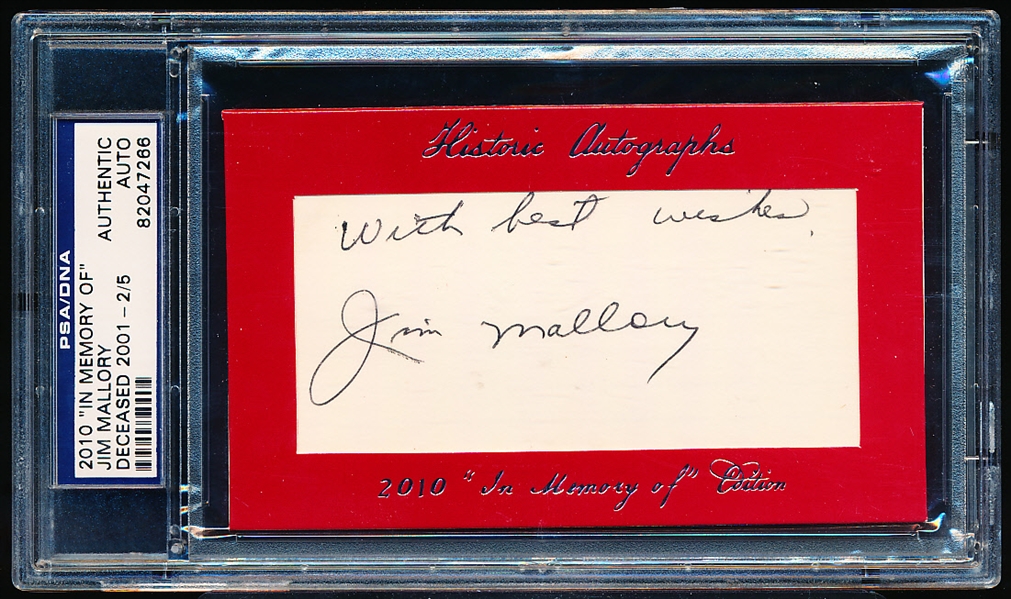 PSA/DNA
2010 "IN MEMORY OF"
JIM MALLORY
DECEASED 2001 - 2/5
AUTHENTIC
AUTO
82047266
Historic Autographs
With best wishes,
Jim Mallory
2010 "In Memory of" Edition